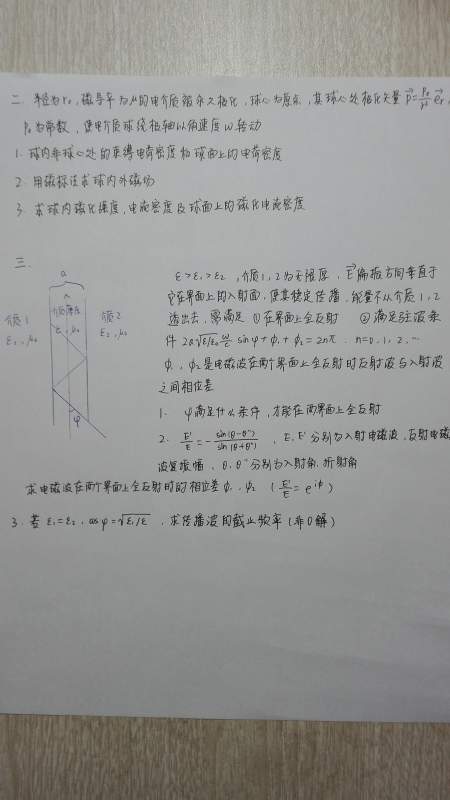 二. 半径为r₀,磁导率为μ的电介质被永久极化,球心为原点,其球心处极化矢量 P⃗=P₀/r² e⃗r,
P₀为常数,使电介质球绕极轴以角速度ω转动
1. 球内非球心处的束缚电荷密度和球面上的电荷密度
2. 用磁标法求球内外磁场
3. 求球内磁化强度,电流密度及球面上的磁化电流密度
三.
a
介质1
ε₁,μ₀
介质薄
ε,μ₀
介质2
ε₂,μ₀
φ
ε>ε₁>ε₂,介质1,2为无限厚,E⃗偏振方向垂直于
它在界面上的入射面,使其稳定传播,能量不从介质1,2
透出去,需满足 ①在界面上全反射 ②满足驻波条
件 2a√ε/ε₀ ω/c sinφ+φ₁+φ₂=2nπ. n=0,1,2,…
φ₁,φ₂是电磁波在两个界面上全反射时反射波与入射波
之间相位差
1. φ满足什么条件,才能在两界面上全反射
2. E'/E=-sin(θ-θ'')/sin(θ+θ''),E,E'分别为入射电磁波,反射电磁
波复振幅,θ,θ''分别为入射角,折射角
求电磁波在两个界面上全反射时的相位差φ₁,φ₂ (E'/E=e^{iφ})
3. 若ε₁=ε₂,cosφ=√ε₁/ε,求传播波的截止频率(非0解)